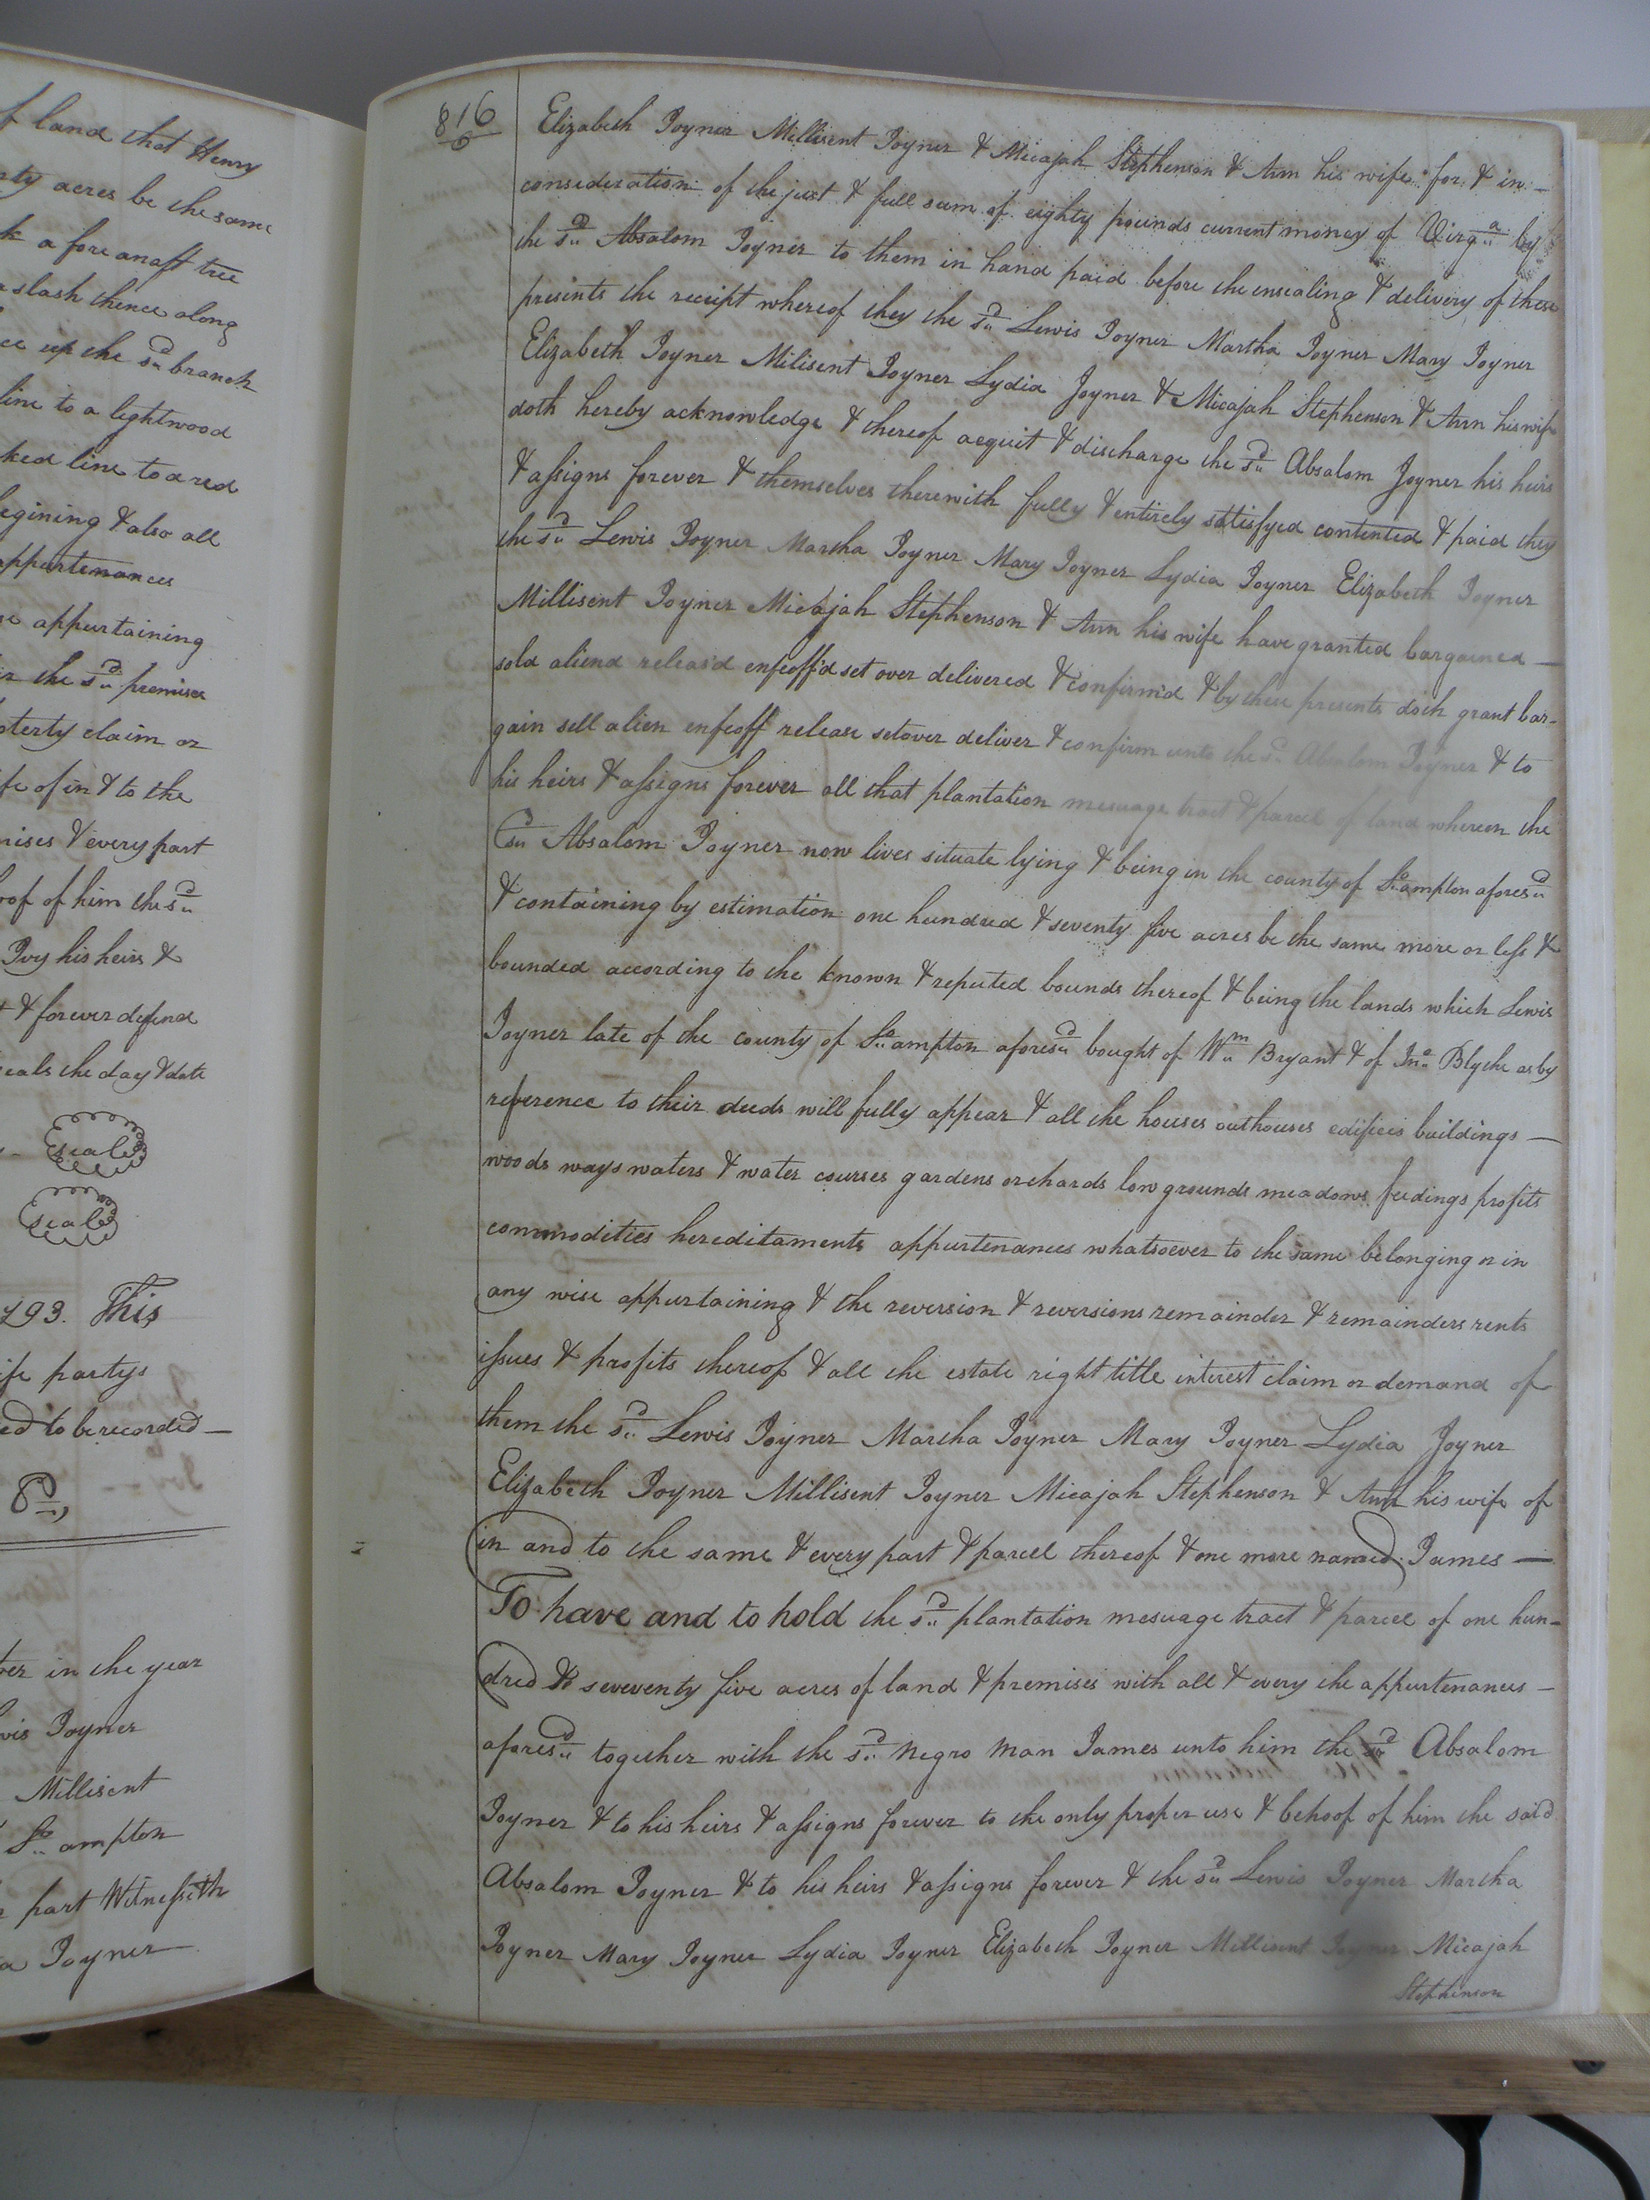 f land that Henry
rty acres be the same
k a fore an aft tree
a slash thence along
ce up the sd branch
line to a lightwood
ked line to a red
egining & also all
appurtenances
se appurtaining
r the sd premises
claim or
fe of in & to the
mises & every part
oof of him the sd
Ivy his heirs &
t & forever defend
seals the day & date
seal
seal
793. This
ife partys
ed to be recorded —
er in the year
wis Joyner
Millisent
So ampton
part Witnesseth
a Joyner
816
6
Elizabeth Joyner Millisent Joyner & Micajah Stephenson & Ann his wife for & in —
consideration of the just & full sum of eighty pounds current money of Virga by
the sd Absalom Joyner to them in hand paid before the ensealing & delivery of these
presents the receipt whereof they the sd Lewis Joyner Martha Joyner Mary Joyner
Elizabeth Joyner Milisent Joyner Lydia Joyner & Micajah Stephenson & Ann his wife
doth hereby acknowledge & thereof acquit & discharge the sd Absalom Joyner his heirs
& assigns forever & themselves therewith fully & entirely sattisfyed contented & paid they
the sd Lewis Joyner Martha Joyner Mary Joyner Lydia Joyner Elizabeth Joyner
Millisent Joyner Micajah Stephenson & Ann his wife have granted bargained —
sold aliend releas'd enfeoff'd set over delivered & confirm'd & by these presents doth grant bar-
gain sell alien enfeoff release setover deliver & confirm unto the sd Absalom Joyner & to
his heirs & assigns forever all that plantation mesuage tract & parcel of land whereon the
sd Absalom Joyner now lives situate lying & being in the county of So ampton aforesd
& containing by estimation one hundred & seventy five acres be the same more or less &
bounded according to the known & reputed bounds thereof & being the lands which Lewis
Joyner late of the county of So ampton aforesd bought of Wm Bryant & of Jno Blythe as by
reference to their deeds will fully appear & all the houses outhouses edifices buildings —
woods ways waters & water courses gardens orchards low grounds meadows feedings profits
commodities hereditaments appurtenances whatsoever to the same belonging or in
any wise appurtaining & the reversion & reversions remainder & remainders rents
issues & profits thereof & all the estate right title interest claim or demand of
them the sd Lewis Joyner Martha Joyner Mary Joyner Lydia Joyner
Elizabeth Joyner Millisent Joyner Micajah Stephenson & Ann his wife of
in and to the same & every part & parcel thereof & one more named James —
To have and to hold the sd plantation mesuage tract & parcel of one hun-
dred & seventy five acres of land & premises with all & every the appurtenances —
aforesd together with the sd Negro Man James unto him the sd Absalom
Joyner & to his heirs & assigns forever to the only proper use & behoof of him the said
Absalom Joyner & to his heirs & assigns forever & the sd Lewis Joyner Martha
Joyner Mary Joyner Lydia Joyner Elizabeth Joyner Millisent Joyner Micajah
Stephenson